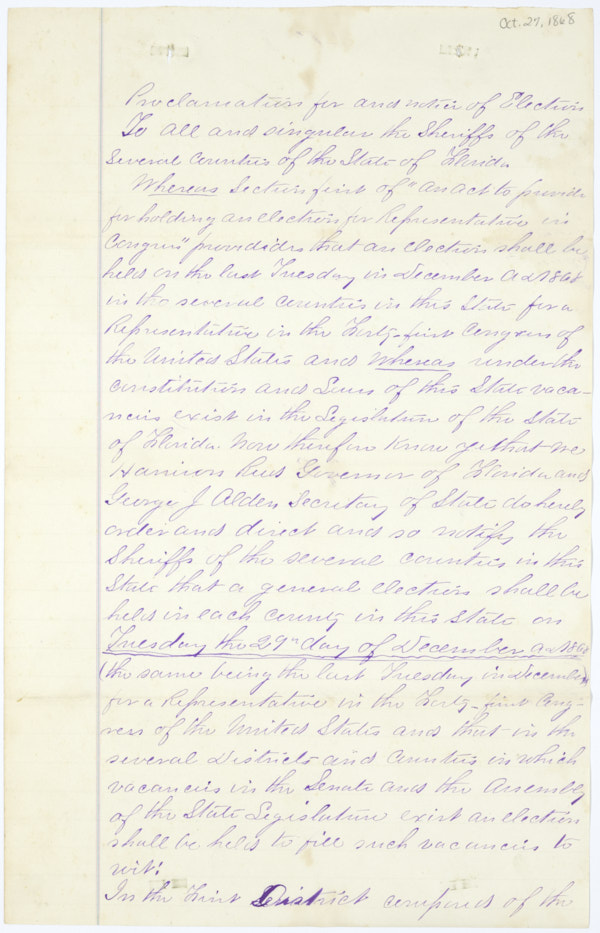 Oct. 27, 1868
Proclamation for and notice of Election
To all and singular the Sheriffs of the
Several Counties of the State of Florida
Whereas Section first of "an act to provide
for holding an election for Representative in
Congress" provididës that an election shall be
held on the last Tuesday in December A D 1868
in the several counties in this State for a
Representative in the Forty-first Congress of
the United States and Whereas under the
constitution and Laws of this State vaca-
ncies exist in the Legislature of the State
of Florida. Now therefore Know ye that we
Harrison Reed Governor of Florida and
George J Alden Secretary of State do hereby
order and direct and so notify the
Sheriffs of the several counties in this
State that a general election shall be
held in each county in this State on
Tuesday the 29th day of December A D 1868
(the same being the last Tuesday in December)
for a Representative in the Forty-first Cong-
ress of the United States and that in the
several Districts and Counties in which
vacancies in the Senate and the Assembly
of the State Legislature exist an election
shall be held to fill such vacancies to
wit:
In the First District composed of the